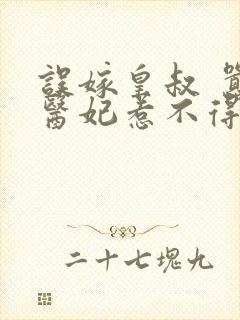 誤嫁皇叔 囂
醫妃惹不得
二十七塊九